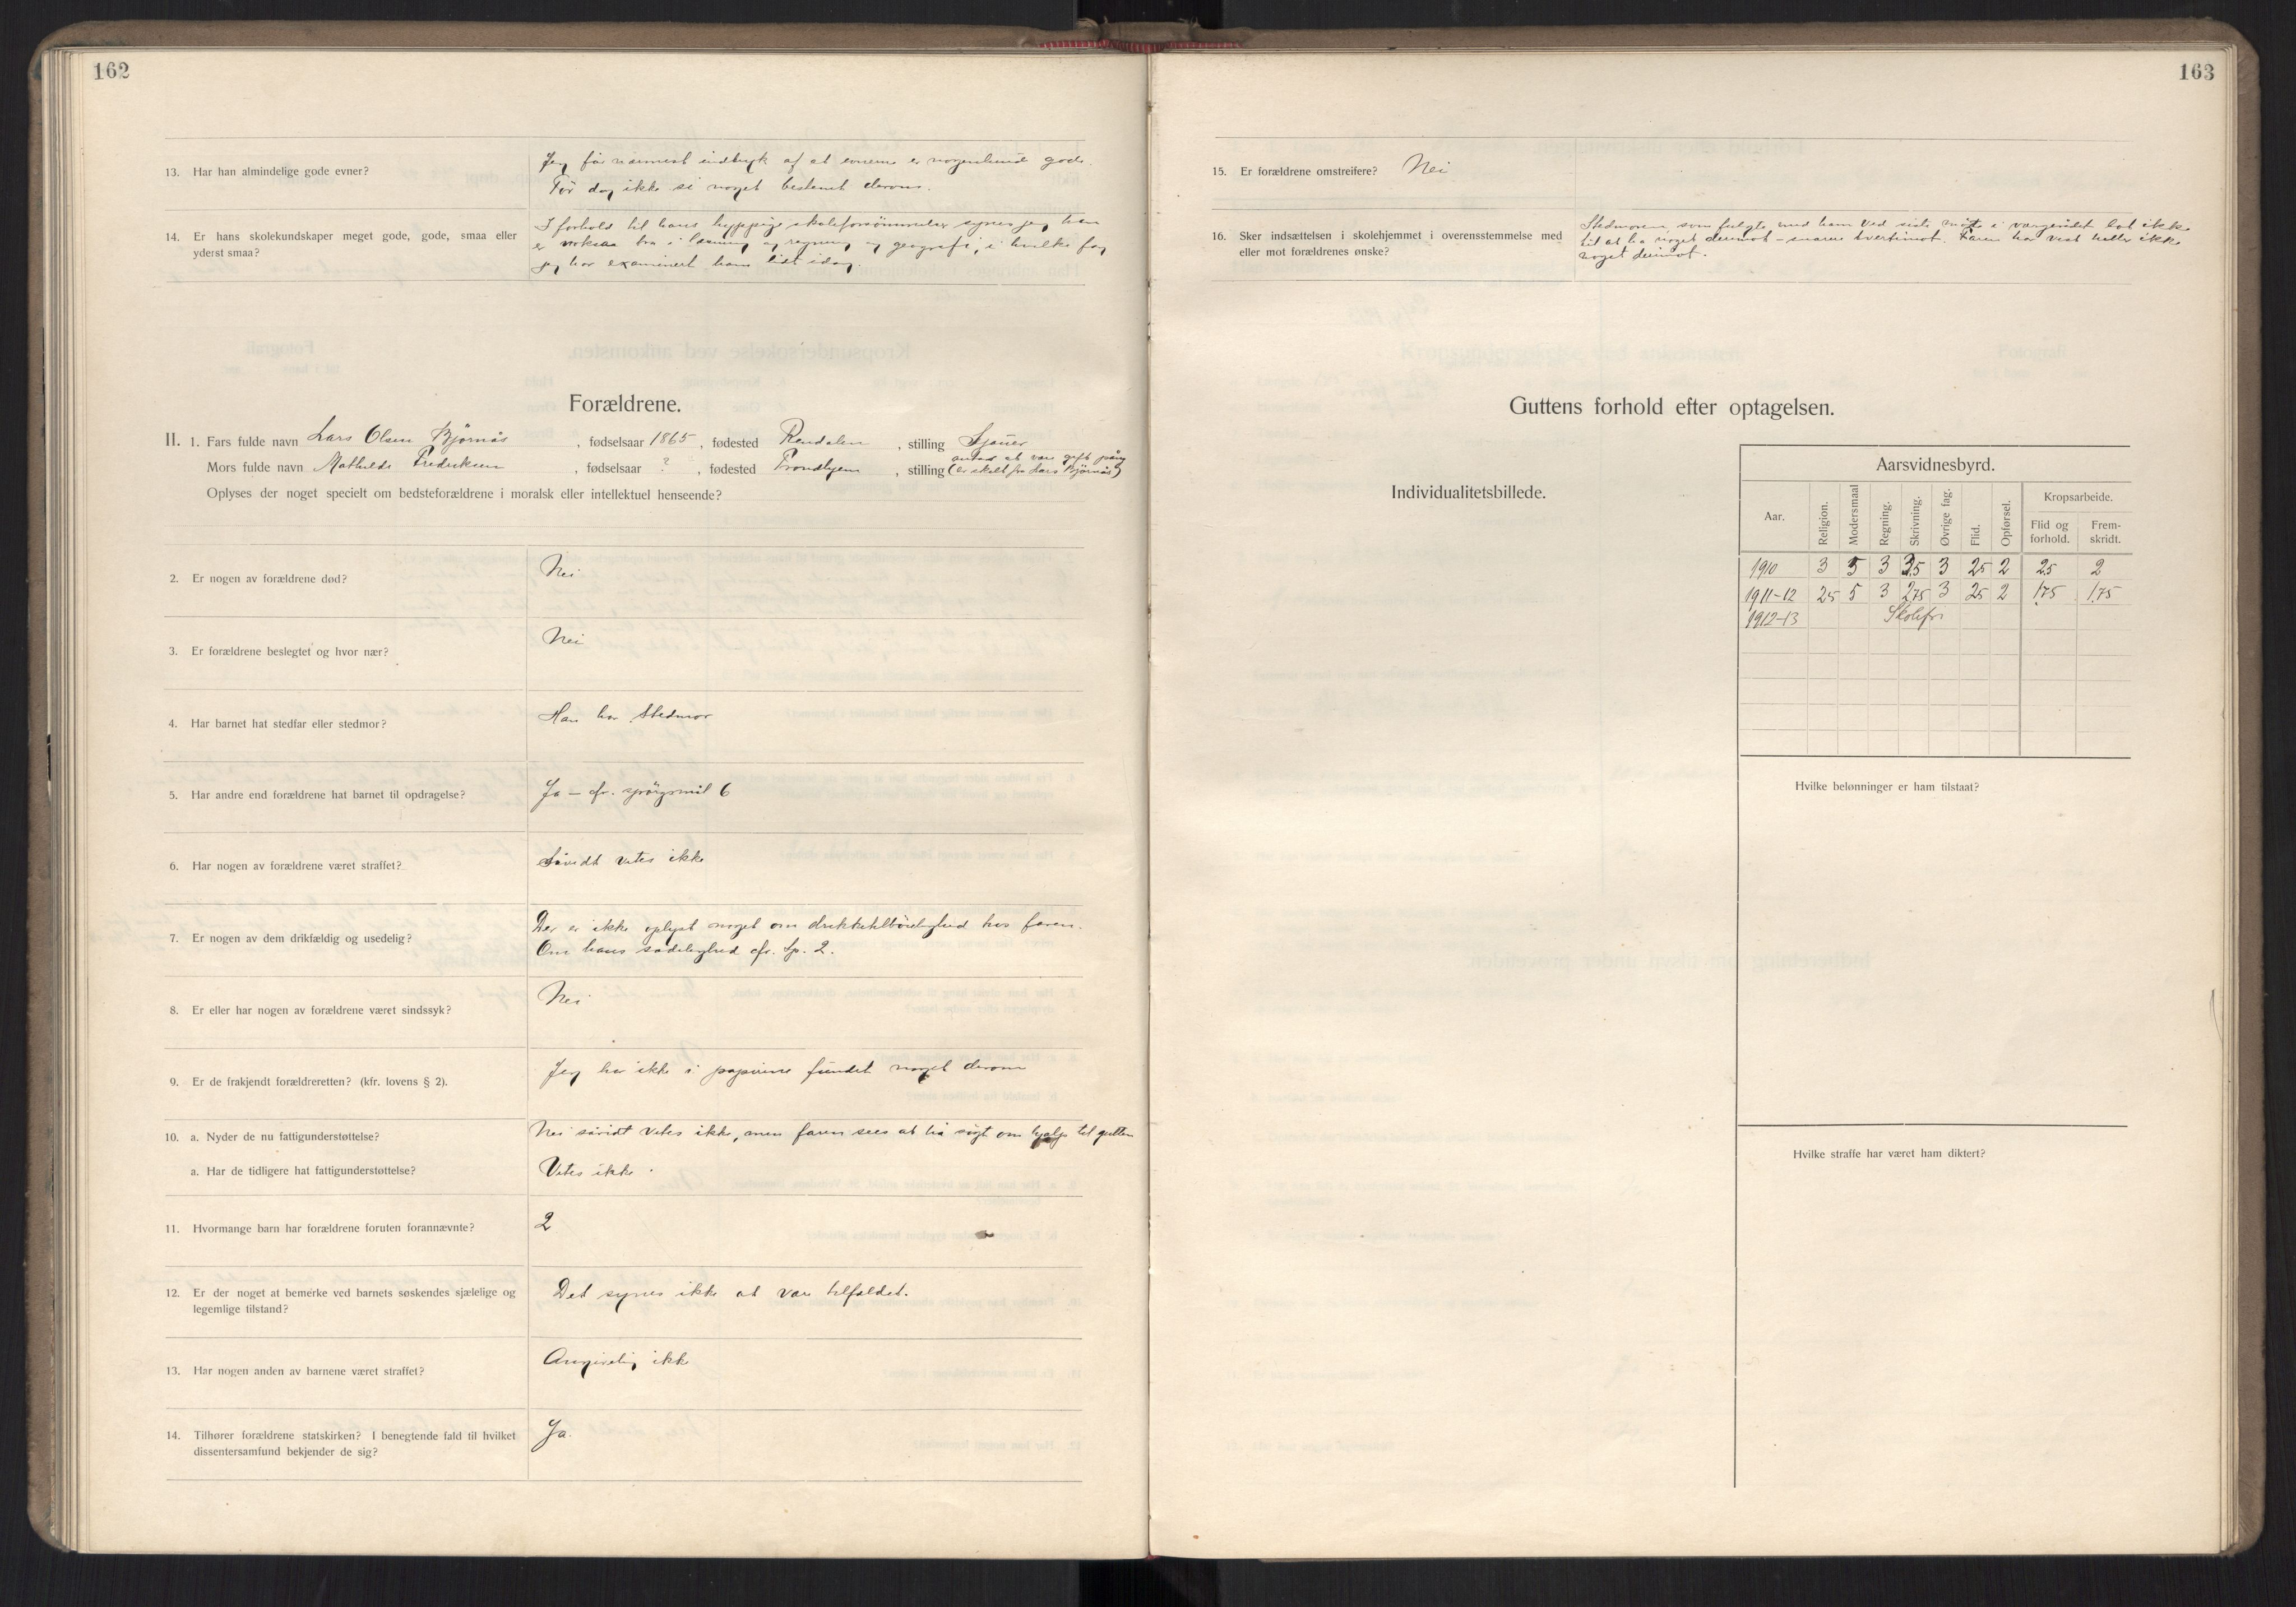 162
13. Har han almindelige gode evner?
Jeg får nærmest indtryk af at evnerne er nogenlunde gode.
Tör dog ikke si noget bestemt derom.
14. Er hans skolekundskaper meget gode, gode, smaa eller
yderst smaa?
I forhold til hans hyppige skoleforsömmelser synes jeg han
er voksaa bra i læsning og regning og geografi, i hvilke fag
jeg har examinert ham lidt idag.
Forældrene.
II. 1. Fars fulde navn Lars Olsen Bjørnås, fødselsaar 1865, fødested Rendalen, stilling Sjauer
Mors fulde navn Mathilde Fredriksen, fødselsaar ?, fødested Trondhjem, stilling antas at være gift påny (er skilt fra Lars Bjørnås)
Oplyses der noget specielt om bedsteforældrene i moralsk eller intellektuel henseende?
2. Er nogen av forældrene død?
Nei
3. Er forældrene beslegtet og hvor nær?
Nei
4. Har barnet hat stedfar eller stedmor?
Han har Stedmor
5. Har andre end forældrene hat barnet til opdragelse?
Ja – cfr. spörgsmål 6
6. Har nogen av forældrene været straffet?
Såvidt vites ikke
7. Er nogen av dem drikfældig og usedelig?
Der er ikke oplyst noget om drikktilböielighed hos faren.
Om hans sædelighed cfr. Sp. 2.
8. Er eller har nogen av forældrene været sindssyk?
Nei
9. Er de frakjendt forældreretten? (kfr. lovens § 2).
Jeg har ikke i papirerne fundet noget derom
10. a. Nyder de nu fattigunderstøttelse?
Nei såvidt vites ikke, men faren sees at ha søgt om hjælp til gutten
a. Har de tidligere hat fattigunderstøttelse?
Vites ikke.
11. Hvormange barn har forældrene foruten forannævnte?
2
12. Er der noget at bemerke ved barnets søskendes sjælelige og
legemlige tilstand?
Det synes ikke at være tilfældet.
13. Har nogen anden av barnene været straffet?
Angivelig ikke
14. Tilhører forældrene statskirken? I benegtende fald til hvilket
dissentersamfund bekjender de sig?
Ja.
163
15. Er forældrene omstreifere? Nei
16. Sker indsættelsen i skolehjemmet i overensstemmelse med
eller mot forældrenes ønske?
Stedmoren, som fulgte med ham ved siste møte i vergerådet lot ikke
til at ha noget derimot – snarere tvertimot. Faren har vist heller ikke
noget derimot.
Guttens forhold efter optagelsen.
Individualitetsbillede.
Aarsvidnesbyrd.
Aar. Religion. Modersmaal Regning. Skrivning. Øvrige fag. Flid. Opførsel. Kropsarbeide.
Flid og forhold. Fremskridt.
1910 3 5 3 3,5 3 2,5 2 2,5 2
1911-12 2,5 5 3 2,75 3 2,5 2 1,75 1,75
1912-13 Skolefri
Hvilke belønninger er ham tilstaat?
Hvilke straffe har været ham diktert?